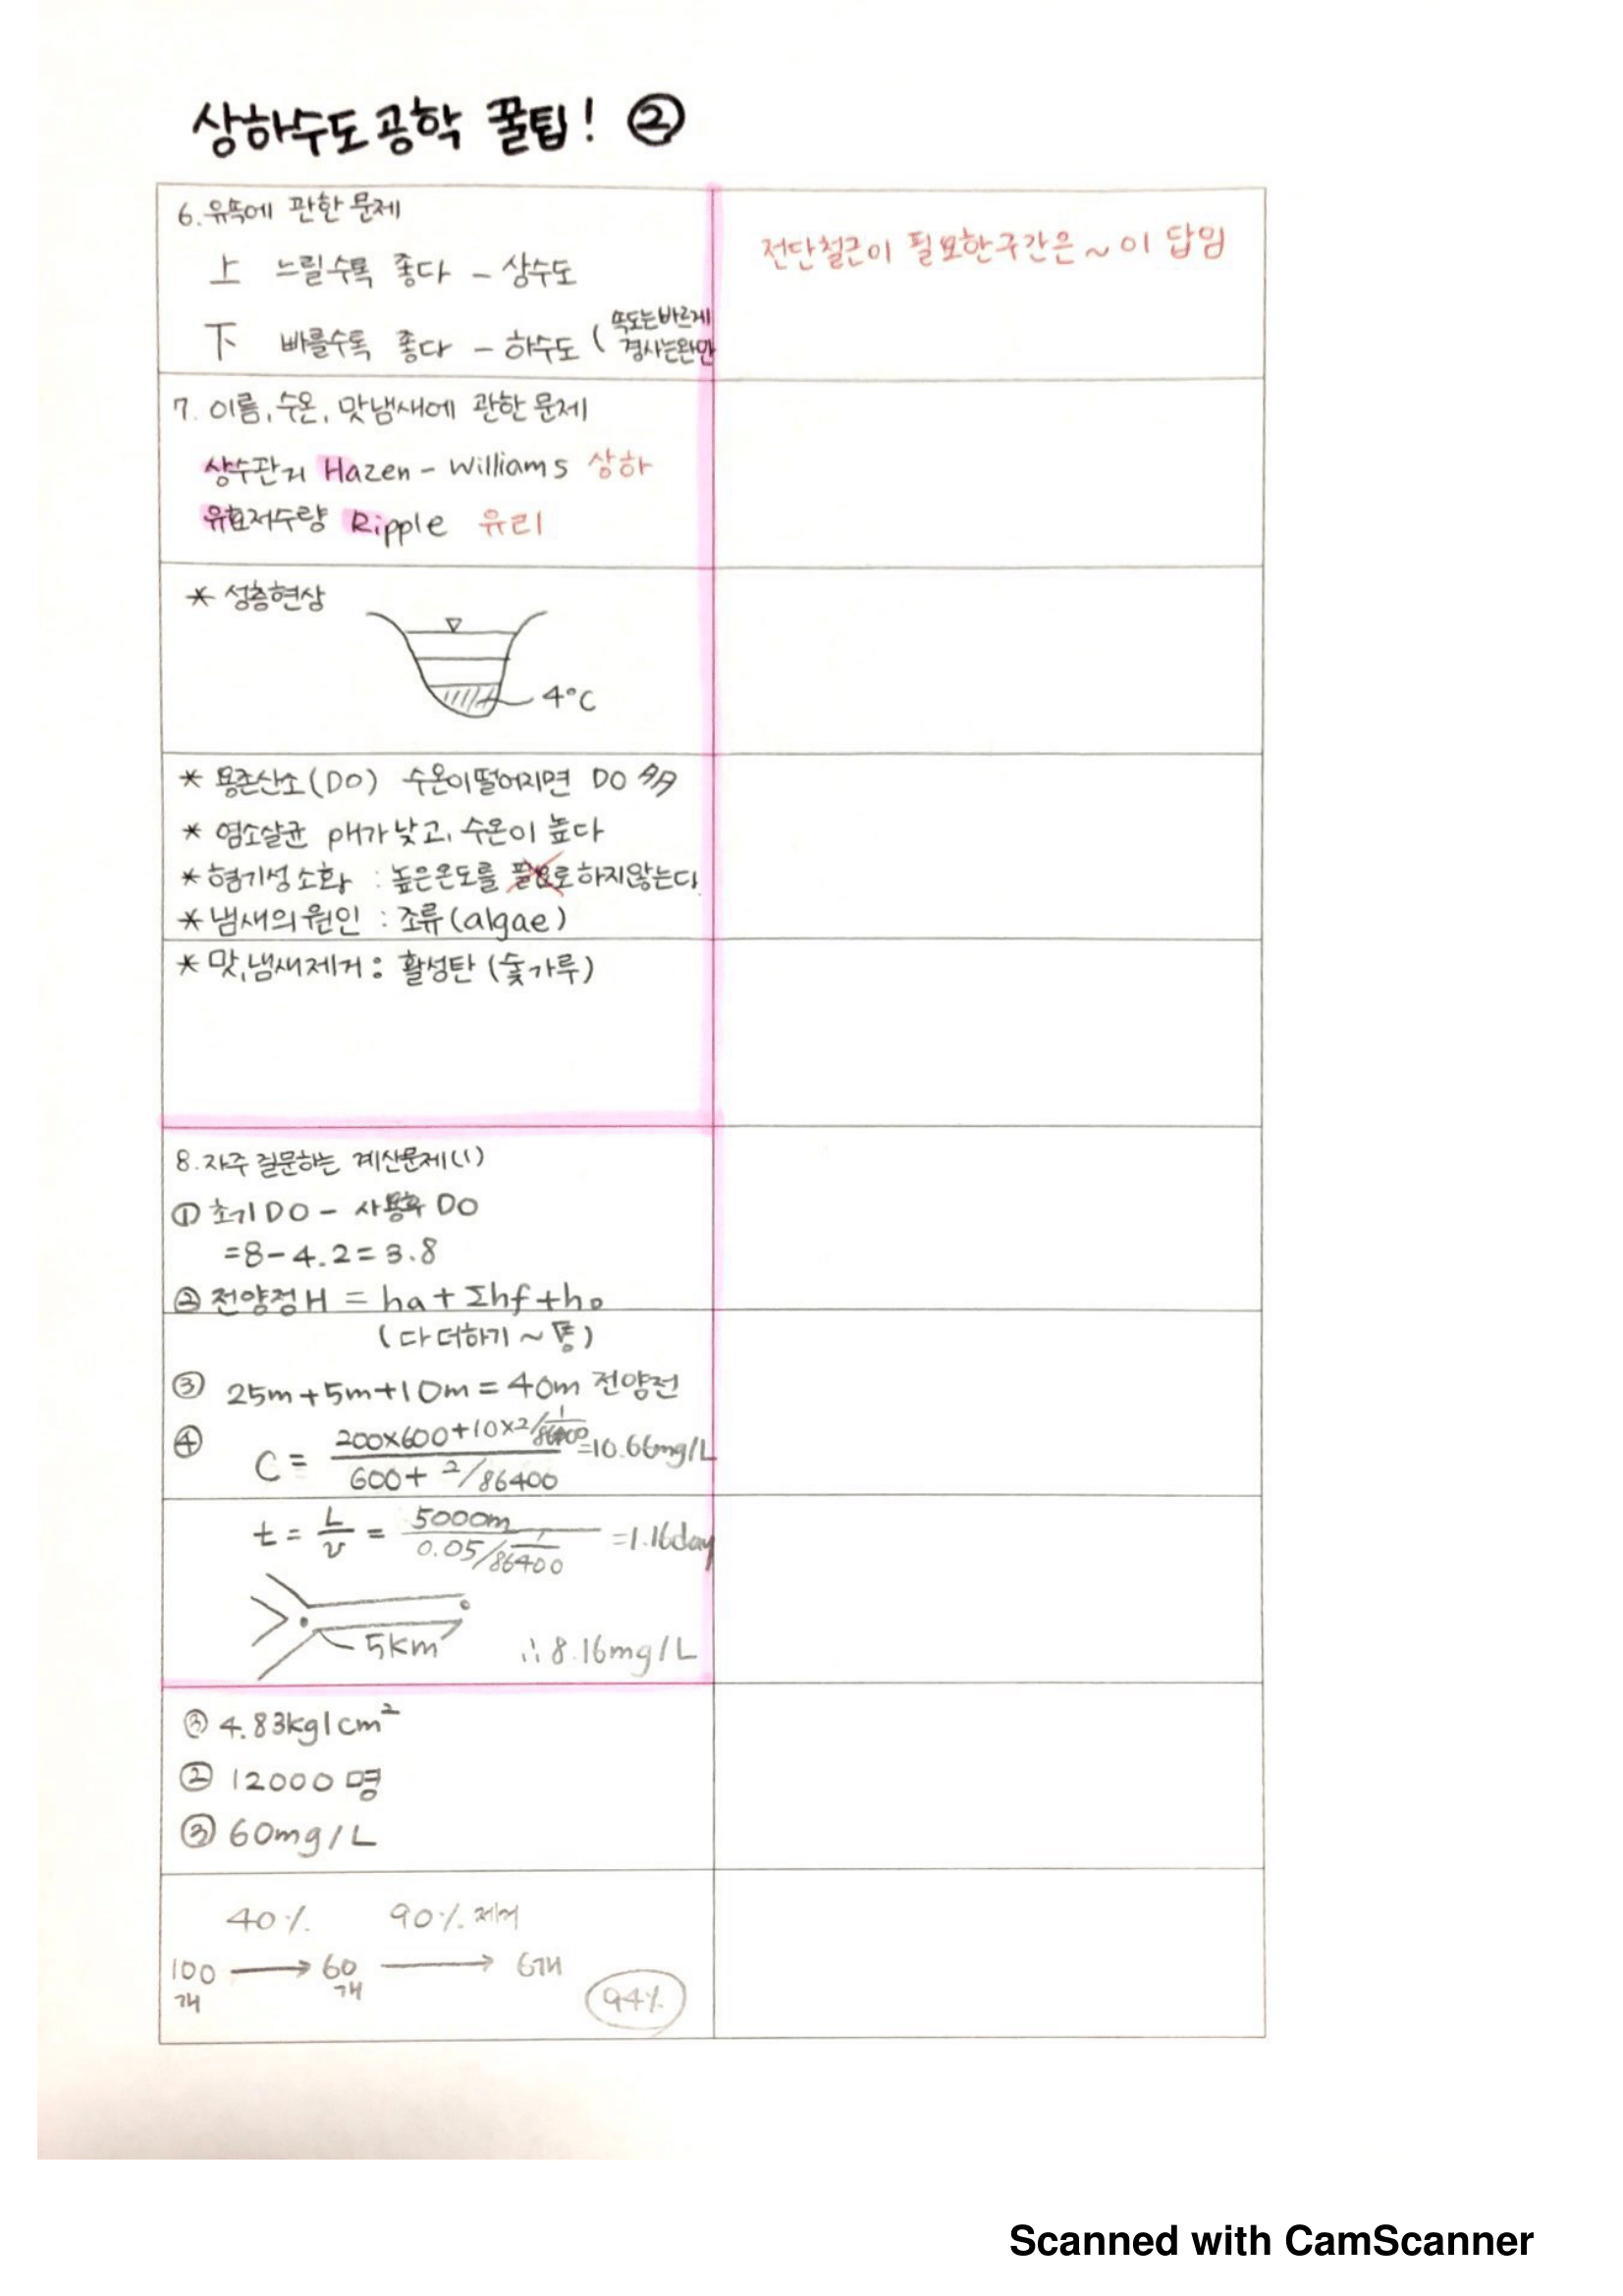 상하수도공학 꿀팁! ②
6. 유속에 관한 문제
上 느릴수록 좋다 - 상수도
下 빠를수록 좋다 - 하수도 (속도는바르게
경사는완만
전단철근이 필요한구간은 ~ 이 답임
7. 이름, 수온, 맛냄새에 관한 문제
상수관거 Hazen - Williams 상하
유효저수량 Ripple 유리
* 성층현상
4°C
* 용존산소(DO) 수온이떨어지면 DO 多
* 염소살균 pH가 낮고, 수온이 높다
* 혐기성소화 : 높은온도를 필요로 하지않는다.
* 냄새의 원인 : 조류(algae)
* 맛,냄새제거 : 활성탄 (숯가루)
8. 자주 질문하는 계산문제(1)
① 초기DO - 사용후 DO
=8-4.2=3.8
② 전양정H = ha+Σhf+ho
(다 더하기 ~ 통)
③ 25m+5m+10m=40m 전양전
④ C = 200×600+10×2/1/86400 / 600+2/86400 =10.66mg/L
t = L/v = 5000m / 0.05/1/86400 =1.16day
5km ∴ 8.16mg/L
③ 4.83kg/cm²
② 12000명
③ 60mg/L
40% 90% 제거
100개 → 60개 → 6개
94%
Scanned with CamScanner